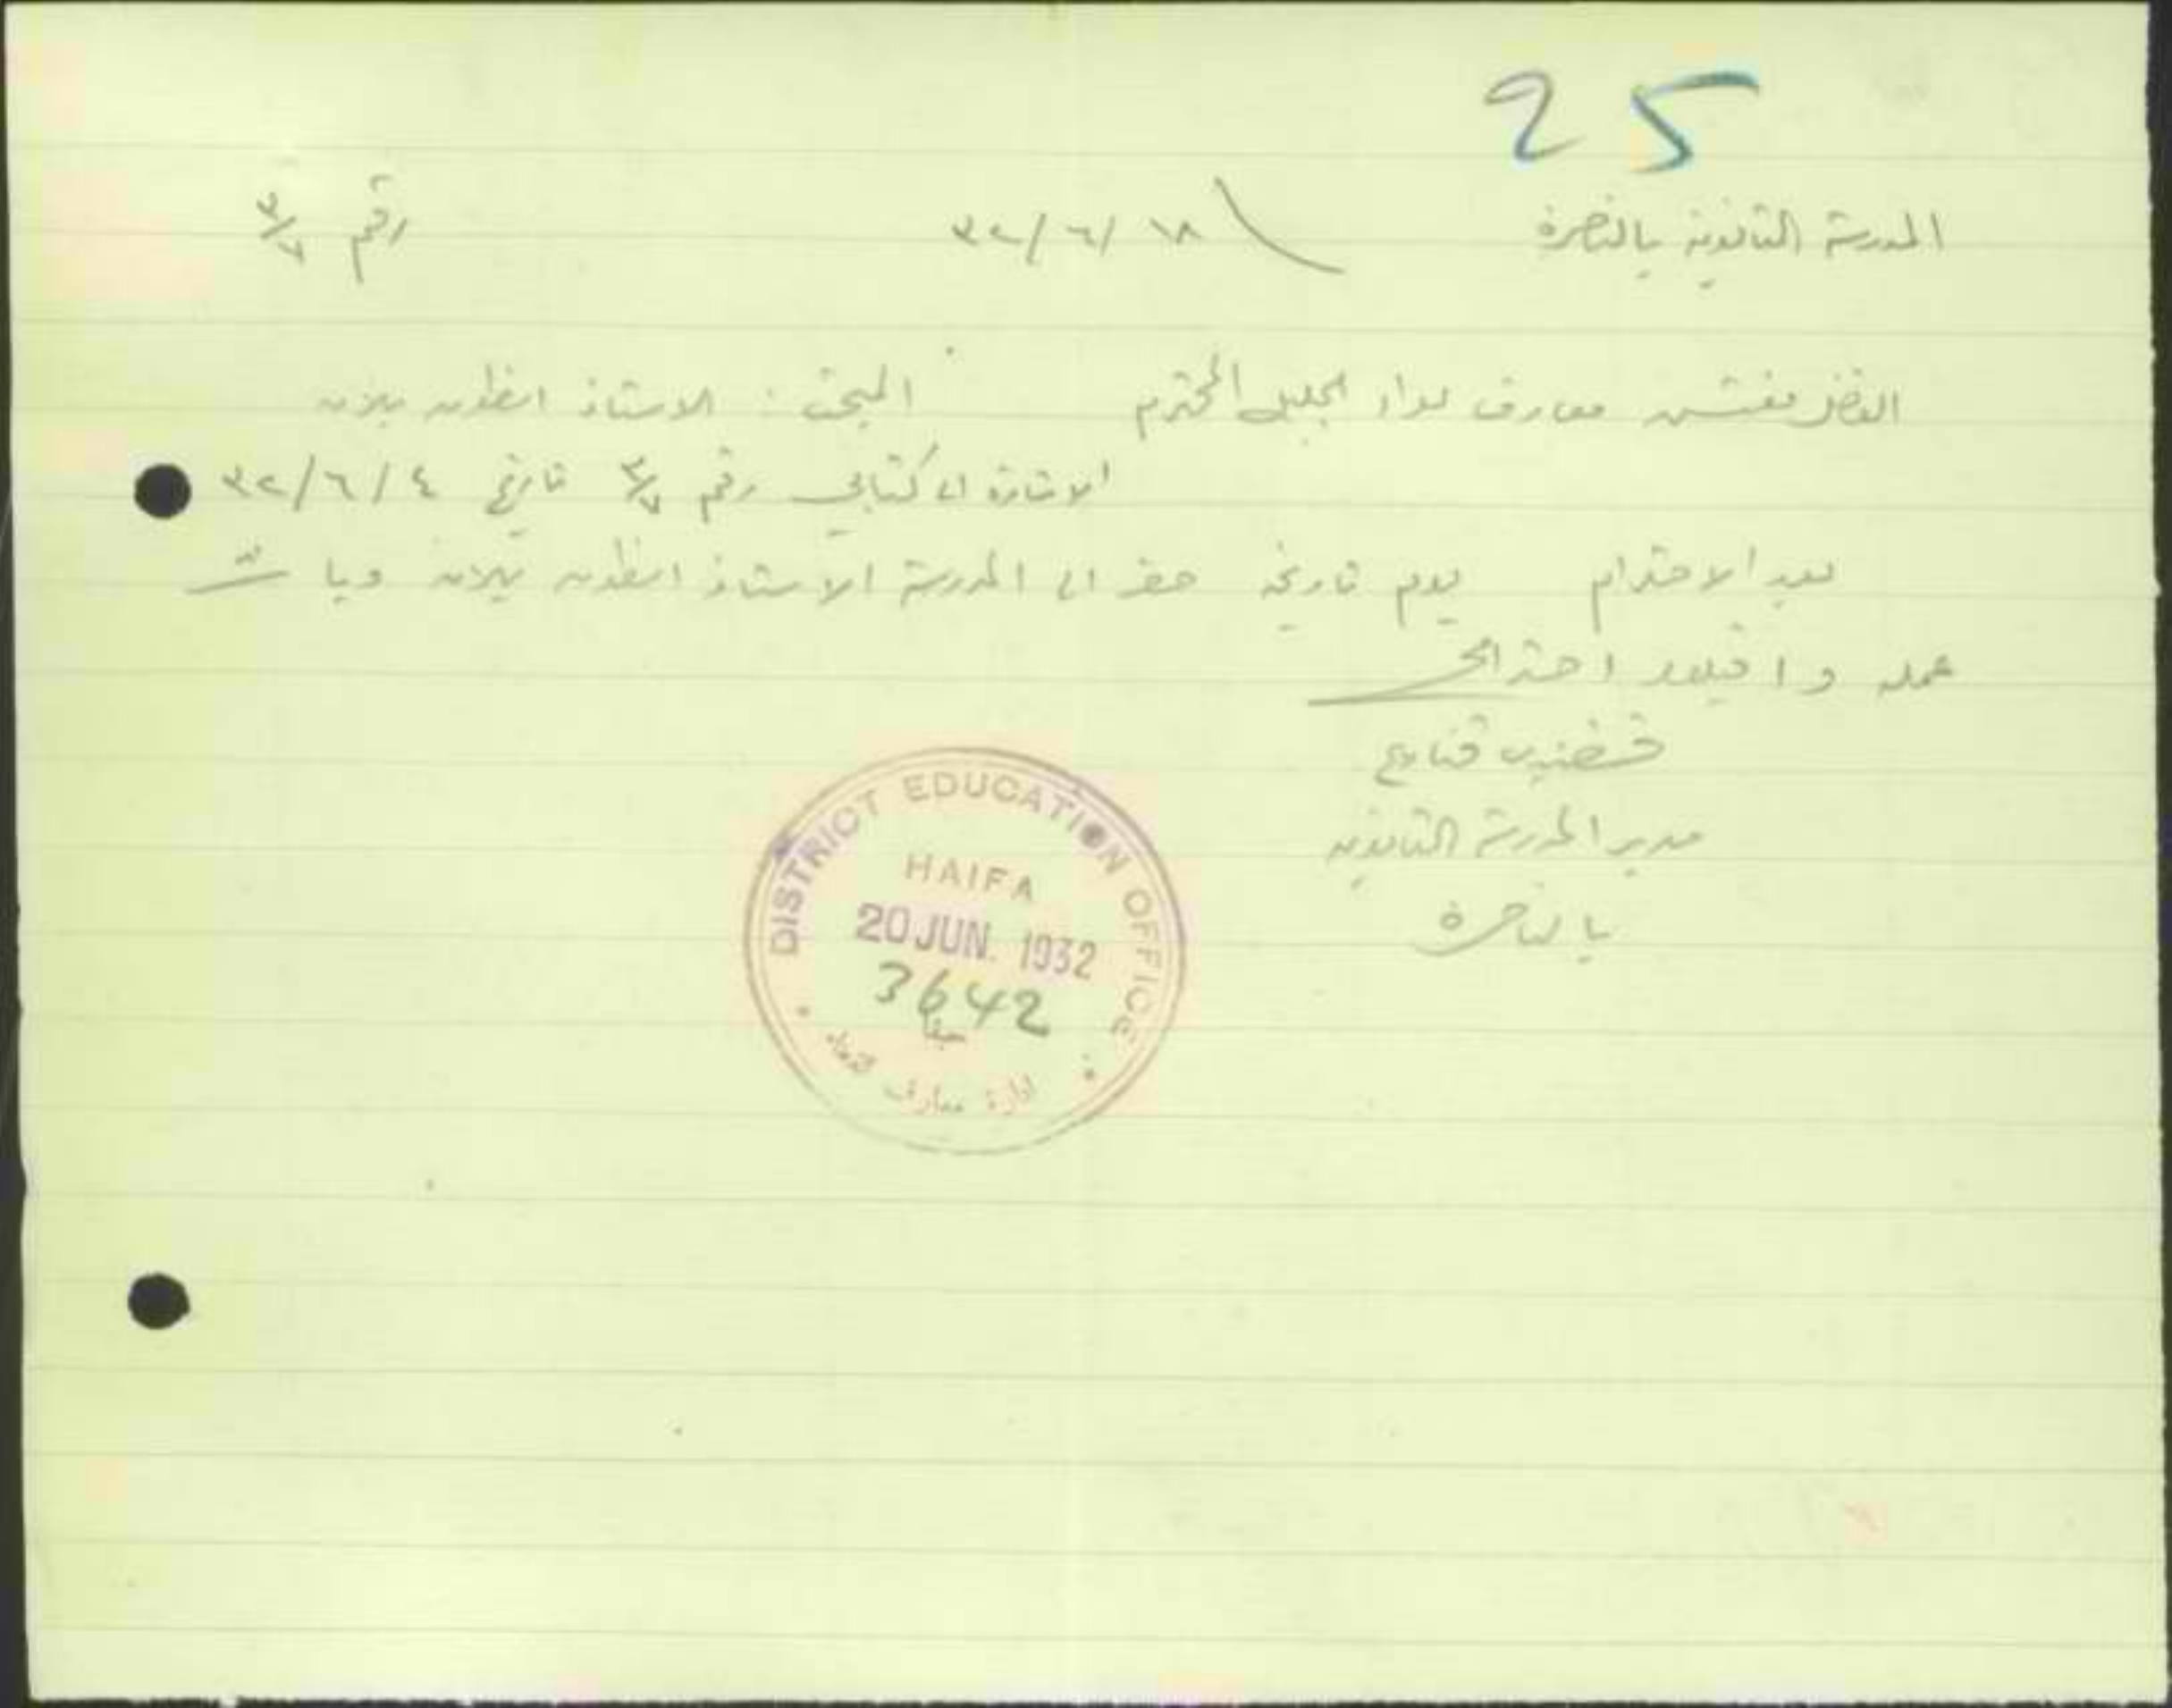 25
المدرسة الثانوية بالناصرة ١٨ /٦/ ٣٢ رقم ٣/٧
مفتش معارف لواء الجليل المحترم المبحث : الاستاذ انطون بلان
الاشارة الى كتابي رقم ٣/٧ تاريخ ٤ /٦/ ٣٢
بعد الاحترام يوم تاريخه حضر الى المدرسة الاستاذ انطون بلان وباشر
عمله و اقبلوا احترامي
قسطندي قنازع
مدير المدرسة الثانوية
بالناصرة
DISTRICT EDUCATION OFFICE
HAIFA
20 JUN. 1932
3642
حيفا
ادارة معارف